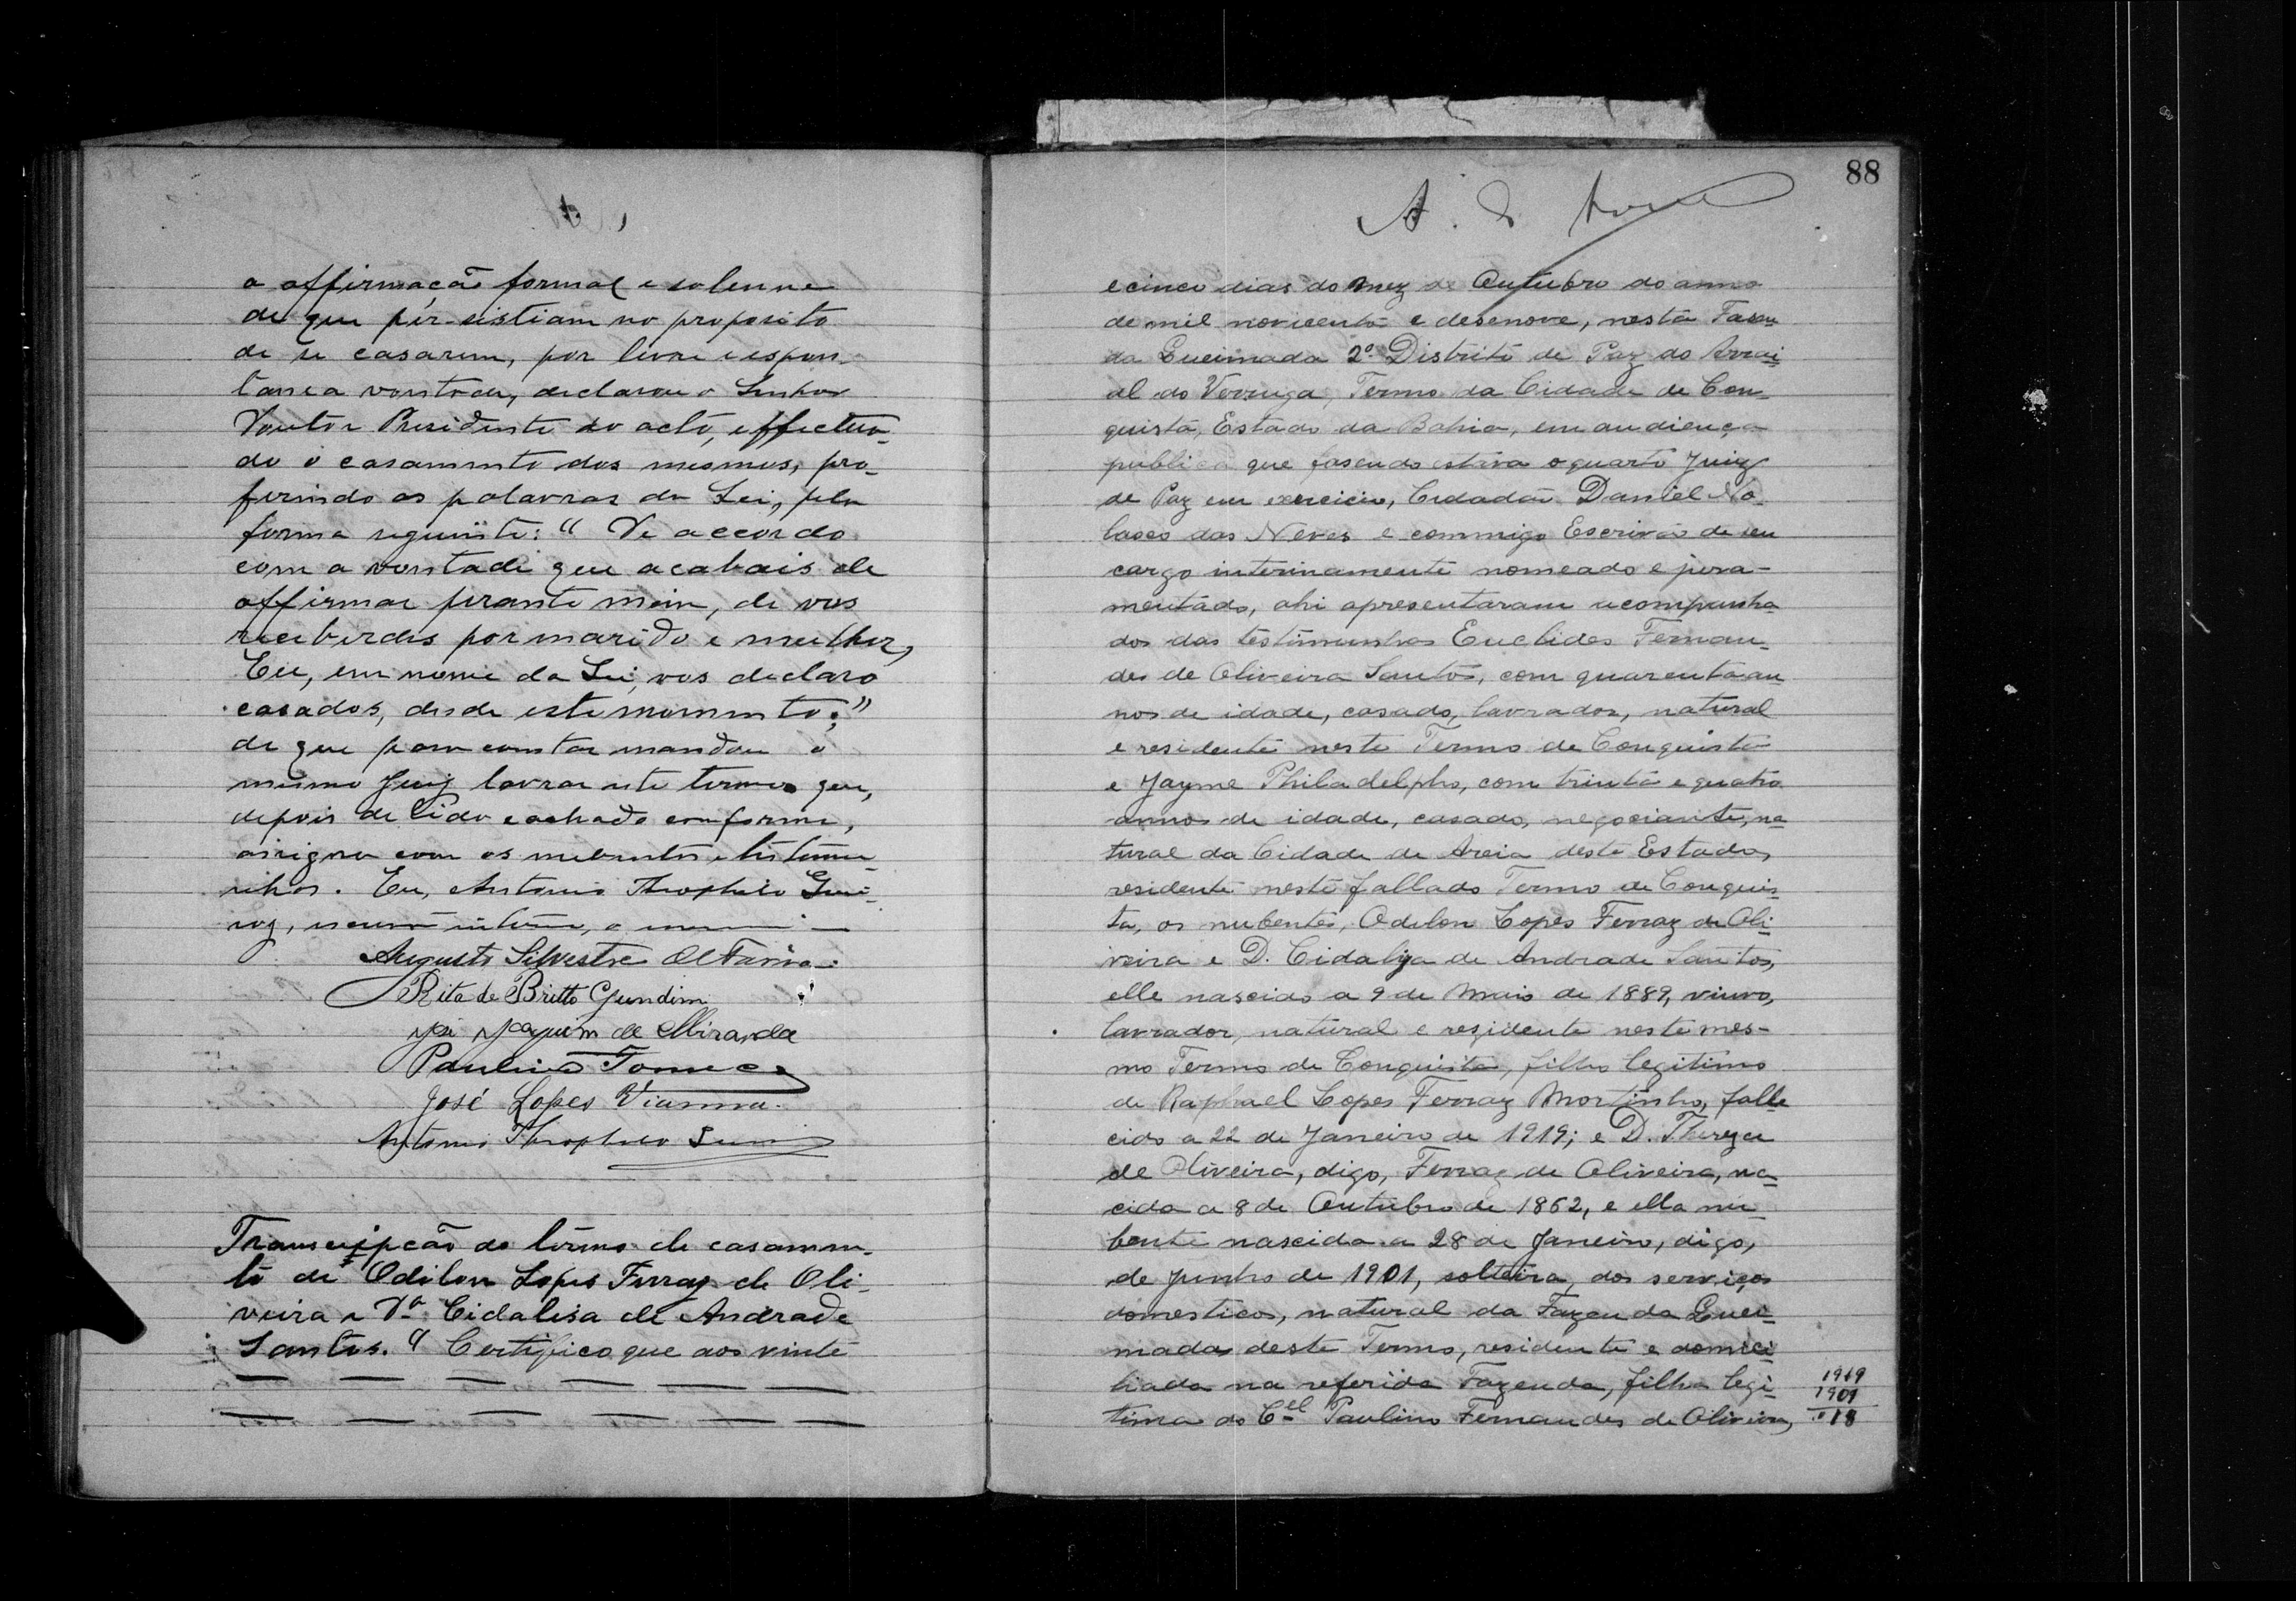 a affirmação formal e solenne
de que per-sistiam no proposito
de se casarem, por livre e espon-
tanea vontade, declarou o Senhor
Doutor Presidente do acto, effectua-
do o casamento dos mesmos, pro-
ferindo as palavras da Lei, pela
forma seguinte: " De accordo
com a vontade que acabais de
affirmar perante mim, de vos
receberdes por marido e mulher,
Eu, em nome da Lei, vos declaro
casados, desde este momento;"
de que para constar mandou o
mesmo Juiz lavrar este termo que,
depois de lido e achado conforme,
assigna com os nubentes e testemu-
nhas. Eu, Antonio Theophilo Quei-
roz, escrivão interino, o
Augusto Silvestre
Rita de Britto Gundim
José Joaquim de Miranda
Paulino Fonseca
José Lopes Vianna.
Antonio Theophilo
Transcripcão do termo de casamen-
to de Odilon Lopes Ferraz de Oli-
veira e Dª Cidalisa de Andrade
Santos. " Certifico que aos vinte
88
A.
e cinco dias do mez de Outubro do anno
de mil novicentos e desenove, nesta Fasen-
da Queimada 2º Distrito de Paz do Arrai-
al do Verruga, Termo da Cidade de Con-
quista, Estado da Bahia, em audiença
publica que fasendo estava o quarto Juiz
de Paz em exercicio, Cidadão Daniel No-
lasco das Neves e commigo Escrivão de seu
cargo interinamente nomeado e jura-
mentado, ahi apresentaram acompanha-
dos das testimunhas Euclides Fernan-
des de Oliveira Santos, com quarenta an-
nos de idade, casado, lavrador, natural
e residente neste Termo de Conquista
e Jayme Philadelpho, com trinta e quatro
annos de idade, casado, negociante, na-
tural da Cidade de Areia deste Estado,
residente neste fallado Termo de Conquis-
ta, os nubentes, Odilon Lopes Ferraz de Oli-
veira e D. Cidaliza de Andrade Santos,
elle nascido a 9 de Maio de 1889, viuvo,
lavrador, natural e rezidente neste mes-
mo Termo de Conquista, filho legitimo
de Raphael Lopes Ferraz Mortinho, falle-
cido a 22 de Janeiro de 1919; e D. Thereza
de Oliveira, digo, Ferraz de Oliveira, na-
cida a 8 de Outubro de 1862, e ella nu-
bente nascida a 28 de Janeiro, digo,
de Junho de 1901, solteira, dos serviços
domesticos, natural da Fazenda Quei-
mada deste Termo, residente e domici-
liada na referida Fazenda, filha legi-
tima do Cel Paulino Fernandes de Oliveira,
1919
1901
18